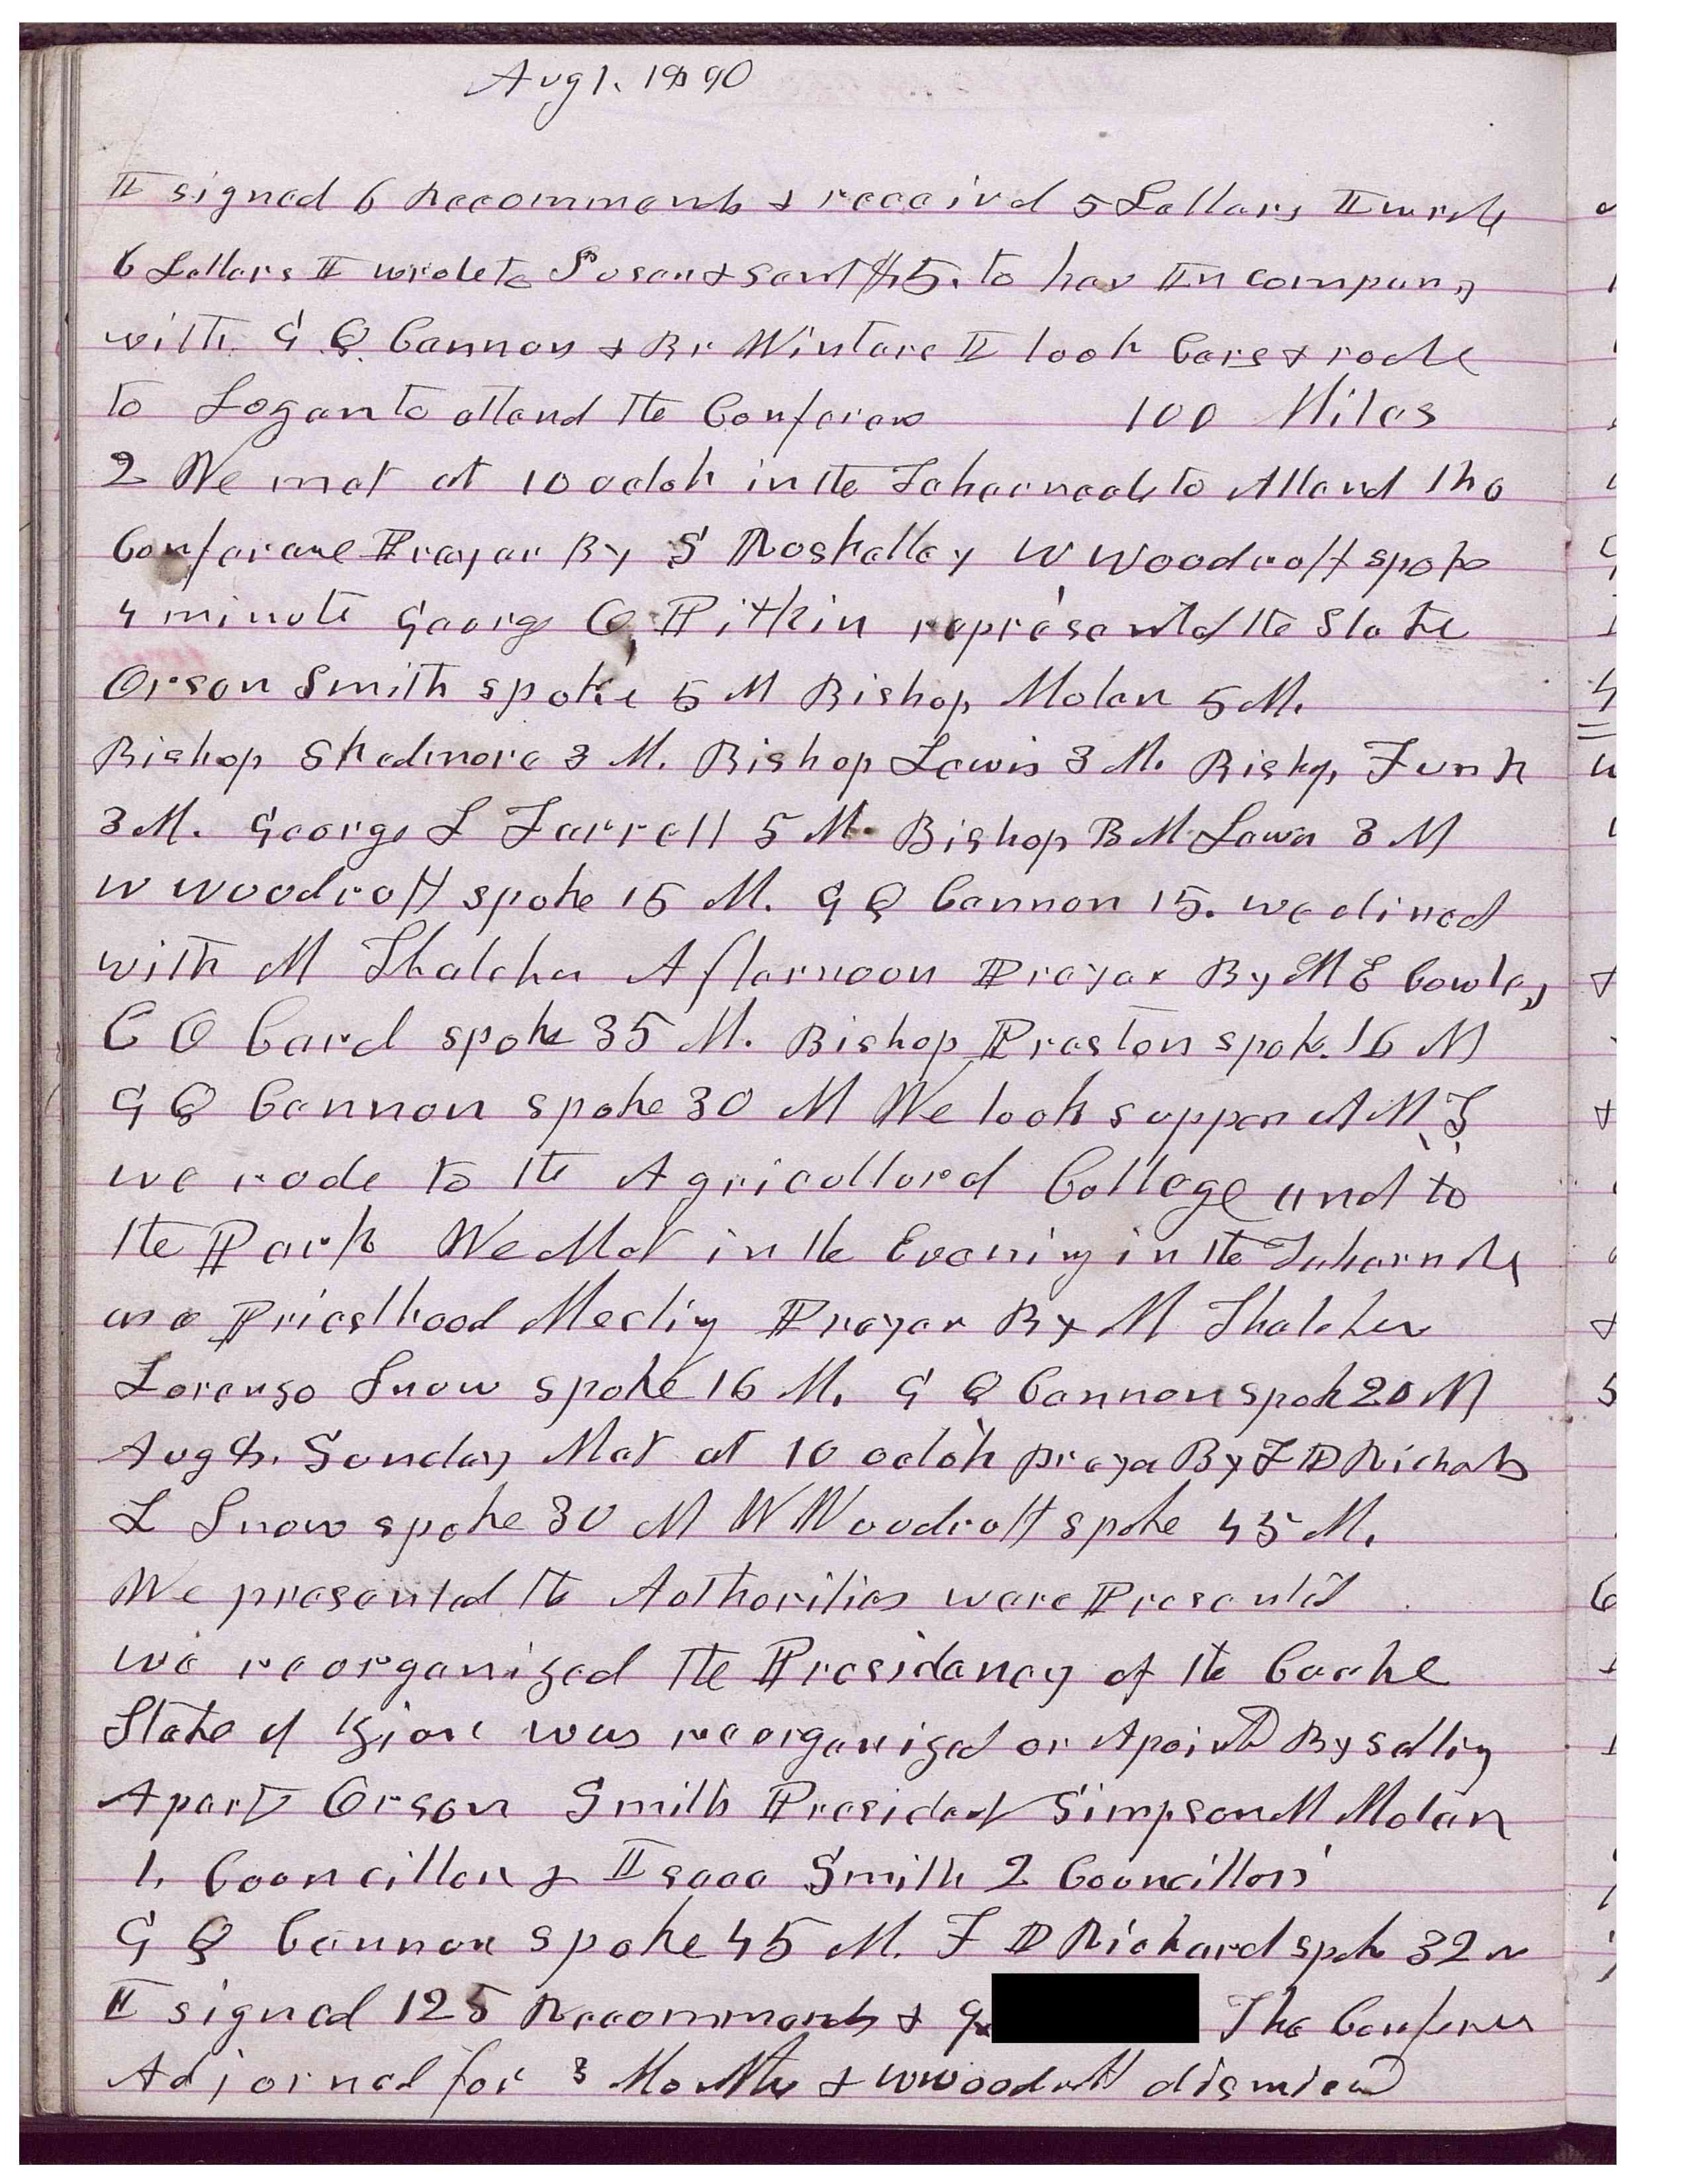 Aug 1. 1890
I signed 6 Recommends & receivd 5 Letters I wrote
6 Letters I wrote to Susan & sent $5. to her In company
with G Q Cannon & Br Winters I took Cars & rode
to Logan to attend the Conferenc 100 Miles
2 We met at 10 oclok in the Tabernacle to Attend the
Conferance Prayer By S Roskelley W Woodruff spoke
4 minute George O Pitkin represented the Stake
Orson Smith spoke 5 M Bishop Molen 5 M.
Bishop Skedmore 3 M. Bishop Lewis 3 M. Bishop Funk
3 M. George L Farrell 5 M. Bishop B M Lewis 3 M
W Woodruff spoke 15 M. G Q Cannon 15. we dined
with M Thatcher Afternoon Prayer By M E Cowley
C O Card spoke 35 M. Bishop Preston spok 16 M
G Q Cannon spoke 30 M We took supper At M T
we rode to the Agricultural College and to
the Park We Met in the Evening in the Tabernacle
as a Priesthood Meeting Prayer By M Thatcher
Lorenzo Snow spoke 16 M. G Q Cannon spok 20 M
Aug 3. Sunday Met at 10 oclok prayer By F D Richards
L Snow spoke 30 M W Woodruff spoke 45 M.
We presented the Authorities were Presented
we reorganized the Presidency of the Cache
Stake of Zion was reorganized or Apointd By setting
Apart Orson Smith President Simpson M Molen
1. Councillor & Isaac Smith 2 Councillor
G Q Cannon spoke 45 M. F D Richard spok 32 m
I signed 125 Recommends & The Conferenc
Adjorned for 3 Months & W Woodruff dismised